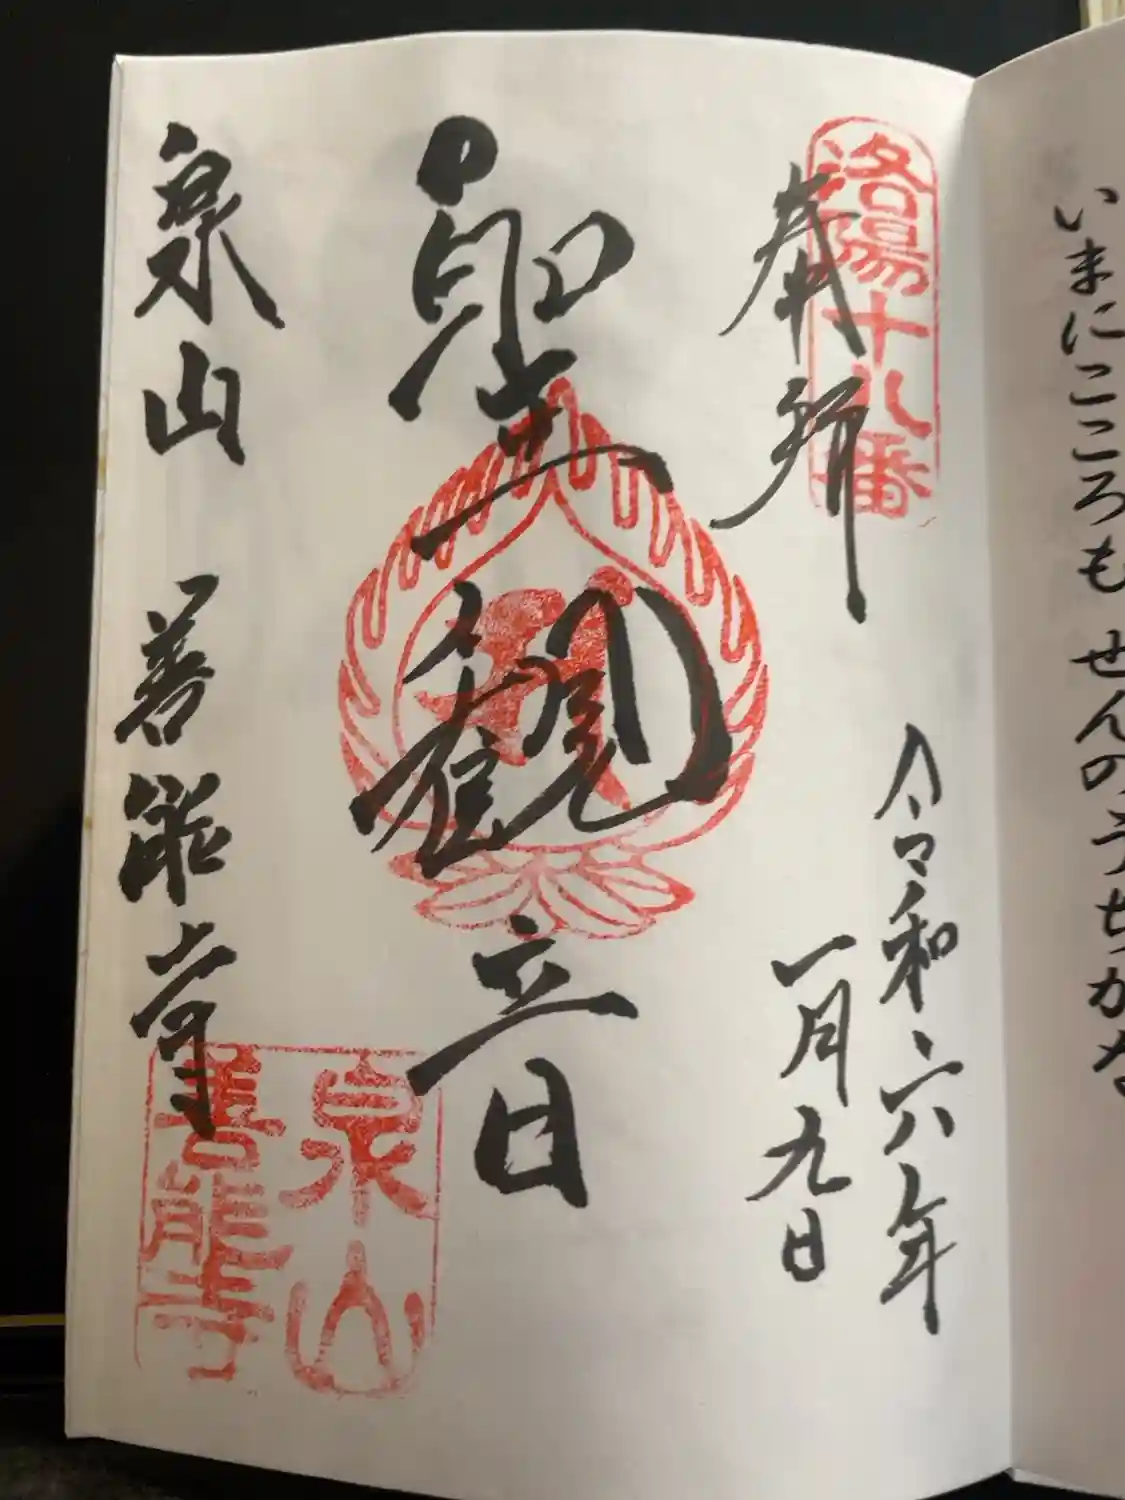 いまにこころも せんのうちかな
洛陽十八番
奉拝
令和六年
一月九日
聖観音
泉山 善能寺
泉山
善能寺